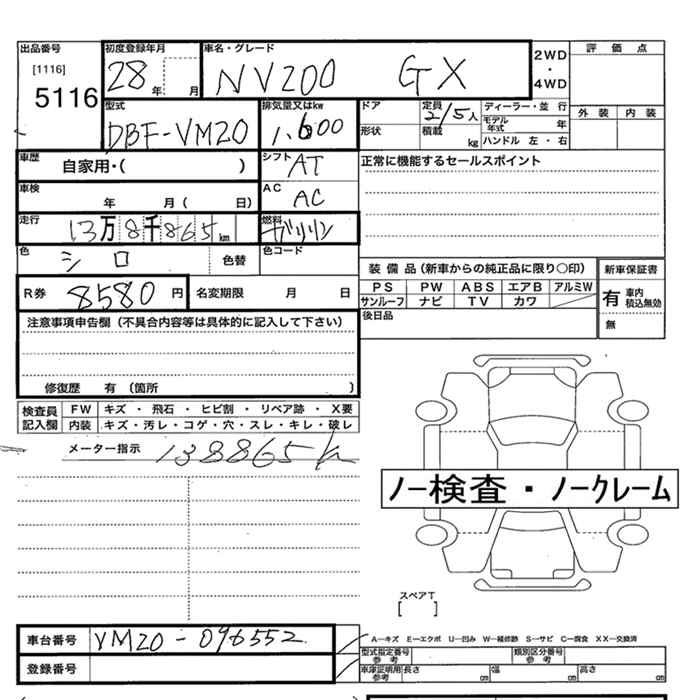 出品番号 初度登録年月 車名・グレード 2WD・4WD 評価点
[1116]
5116 28年 月 NV200 GX
型式 排気量又はkw ドア 定員 2/5人 ディーラー・並行 外装 内装
DBF-VM20 1,600 形状 積載 kg モデル年式 年
ハンドル 左・右
車歴 自家用・( ) シフト AT 正常に機能するセールスポイント
車検 年 月( 日) AC AC
走行 13万8千865km 燃料 ガソリン
色 シロ 色替 色コード
装備品(新車からの純正品に限り○印) 新車保証書
R券 8580円 名変期限 月 日
PS PW ABS エアB アルミW 有 車内積込無効
サンルーフ ナビ TV カワ
注意事項申告欄(不具合内容等は具体的に記入して下さい) 後日品 無
修復歴 有(箇所 )
検査員記入欄 FW キズ・飛石・ヒビ割・リペア跡・X要
内装 キズ・汚レ・コゲ・穴・スレ・キレ・破レ
メーター指示 138865k
ノー検査・ノークレーム
スペアT
[ ]
車台番号 VM20-096552
A―キズ E―エクボ U―凹み W―補修跡 S―サビ C―腐食 XX―交換済
登録番号 型式指定番号 参考 類別区分番号 参考
車庫証明用 参考 長さ cm 幅 cm 高さ cm